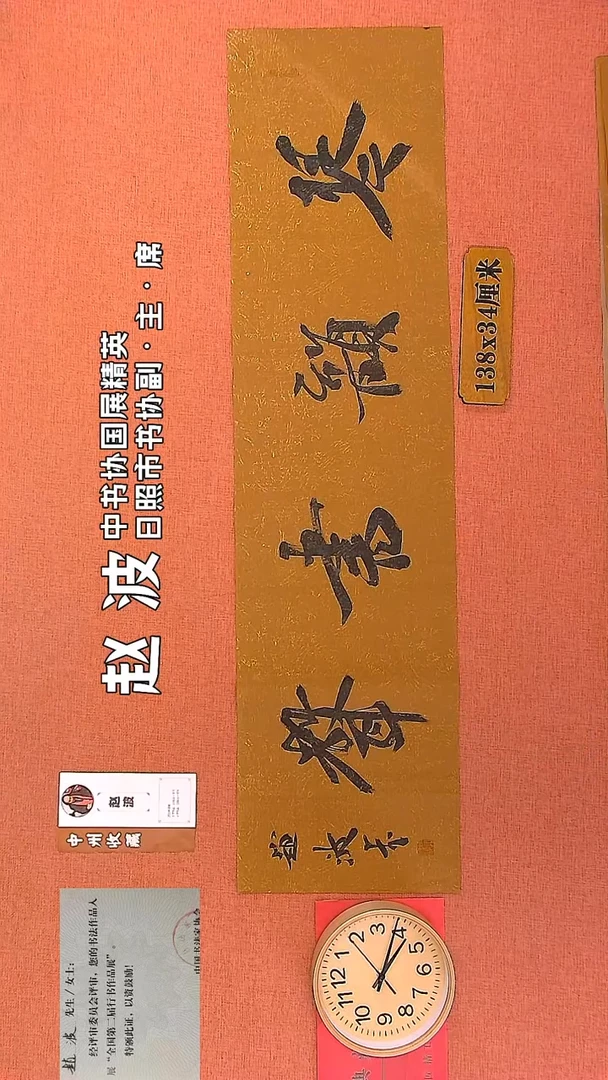 赵波
中书协国展精英
日照市书协副·主·席
琴韻書聲
138x34厘米
赵波
中州收藏
赵波 先生/女士：
经评审委员会评审，您的书法作品入
展“全国第二届行书作品展”。
特颁此证，以资鼓励！
12
1
2
3
4
5
6
7
8
9
10
11